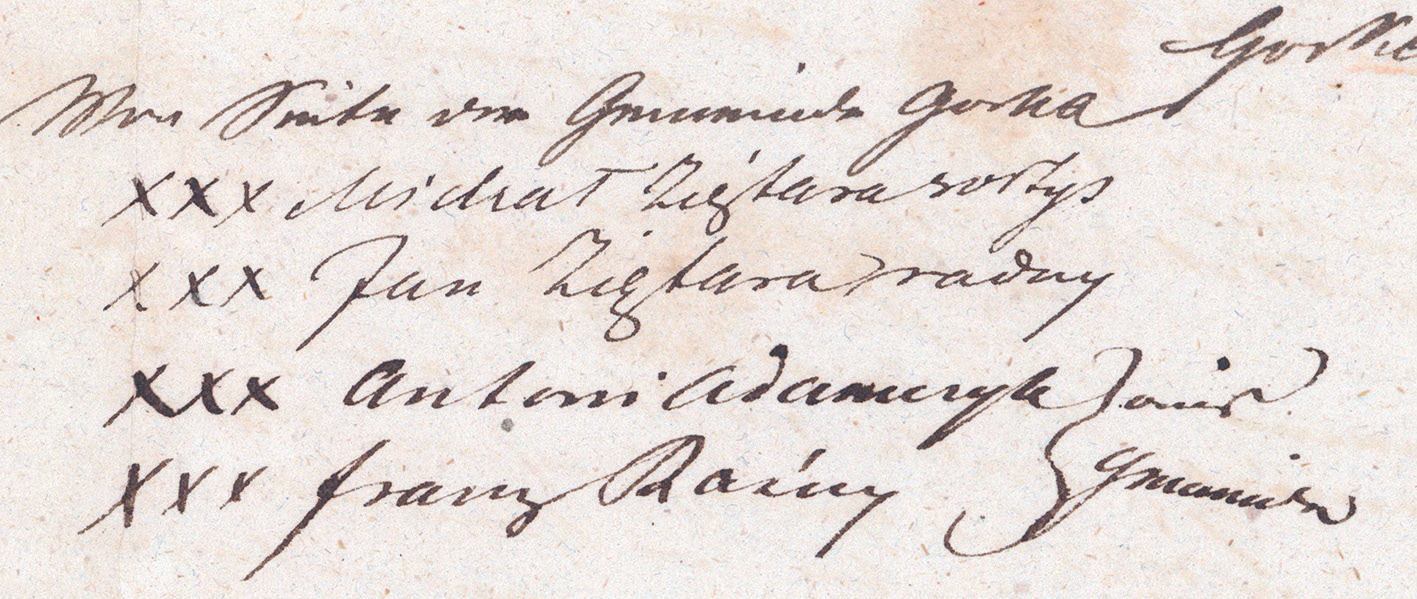 Gorka
Von Seite der Gemeinde Gorka
xxx Michał Ziętara sołtys
xxx Jan Ziętara radny
xxx Antoni Adamczyk } aus
xxx Franz Raźny } Gemeinde